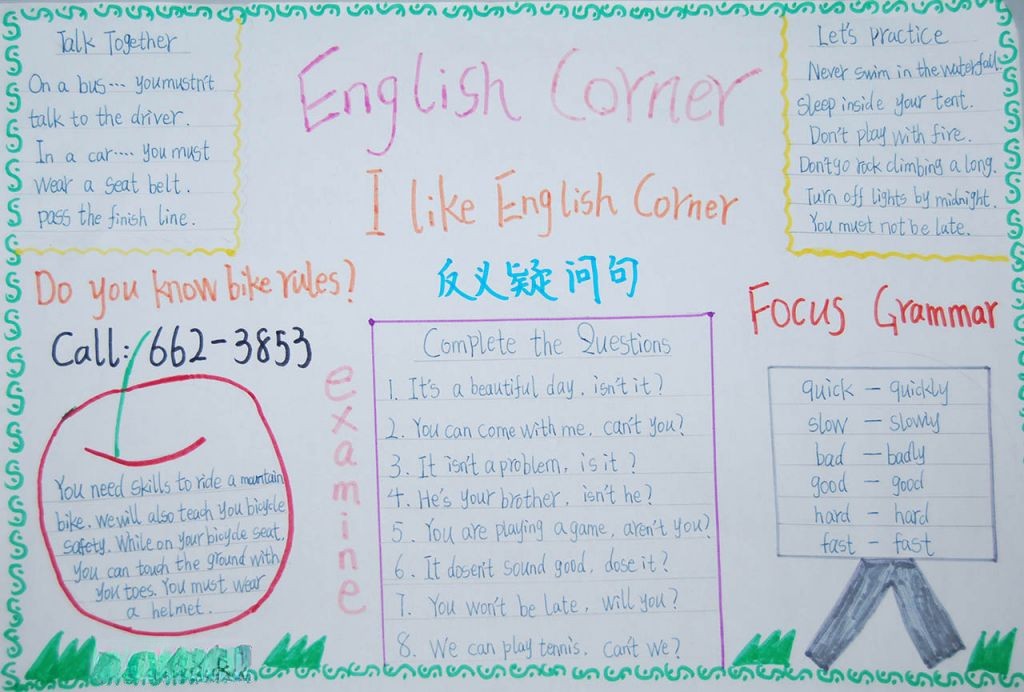 Talk Together
On a bus... you mustn't
talk to the driver.
In a car.... you must
wear a seat belt.
pass the finish line.
English Corner
I like English Corner
反义疑问句
Let's practice
Never swim in the waterfall.
Sleep inside your tent.
Don't play with fire.
Don't go rock climbing a long.
Turn off lights by midnight.
You must not be late.
Do you know bike rules?
Call: 662-3853
You need skills to ride a mantain
bike. We will also teach you bicycle
safety. While on your bicycle seat.
You can touch the ground with
you toes. You must wear
a helmet.
examine
Complete the Questions
1. It's a beautiful day, isn't it?
2. You can come with me, can't you?
3. It isn't a problem, is it?
4. He's your brother, isn't he?
5. You are playing a game, aren't you?
6. It dosen't sound good, dose it?
7. You won't be late, will you?
8. We can play tennis, can't we?
Focus Grammar
quick - quickly
slow - slowly
bad - badly
good - good
hard - hard
fast - fast